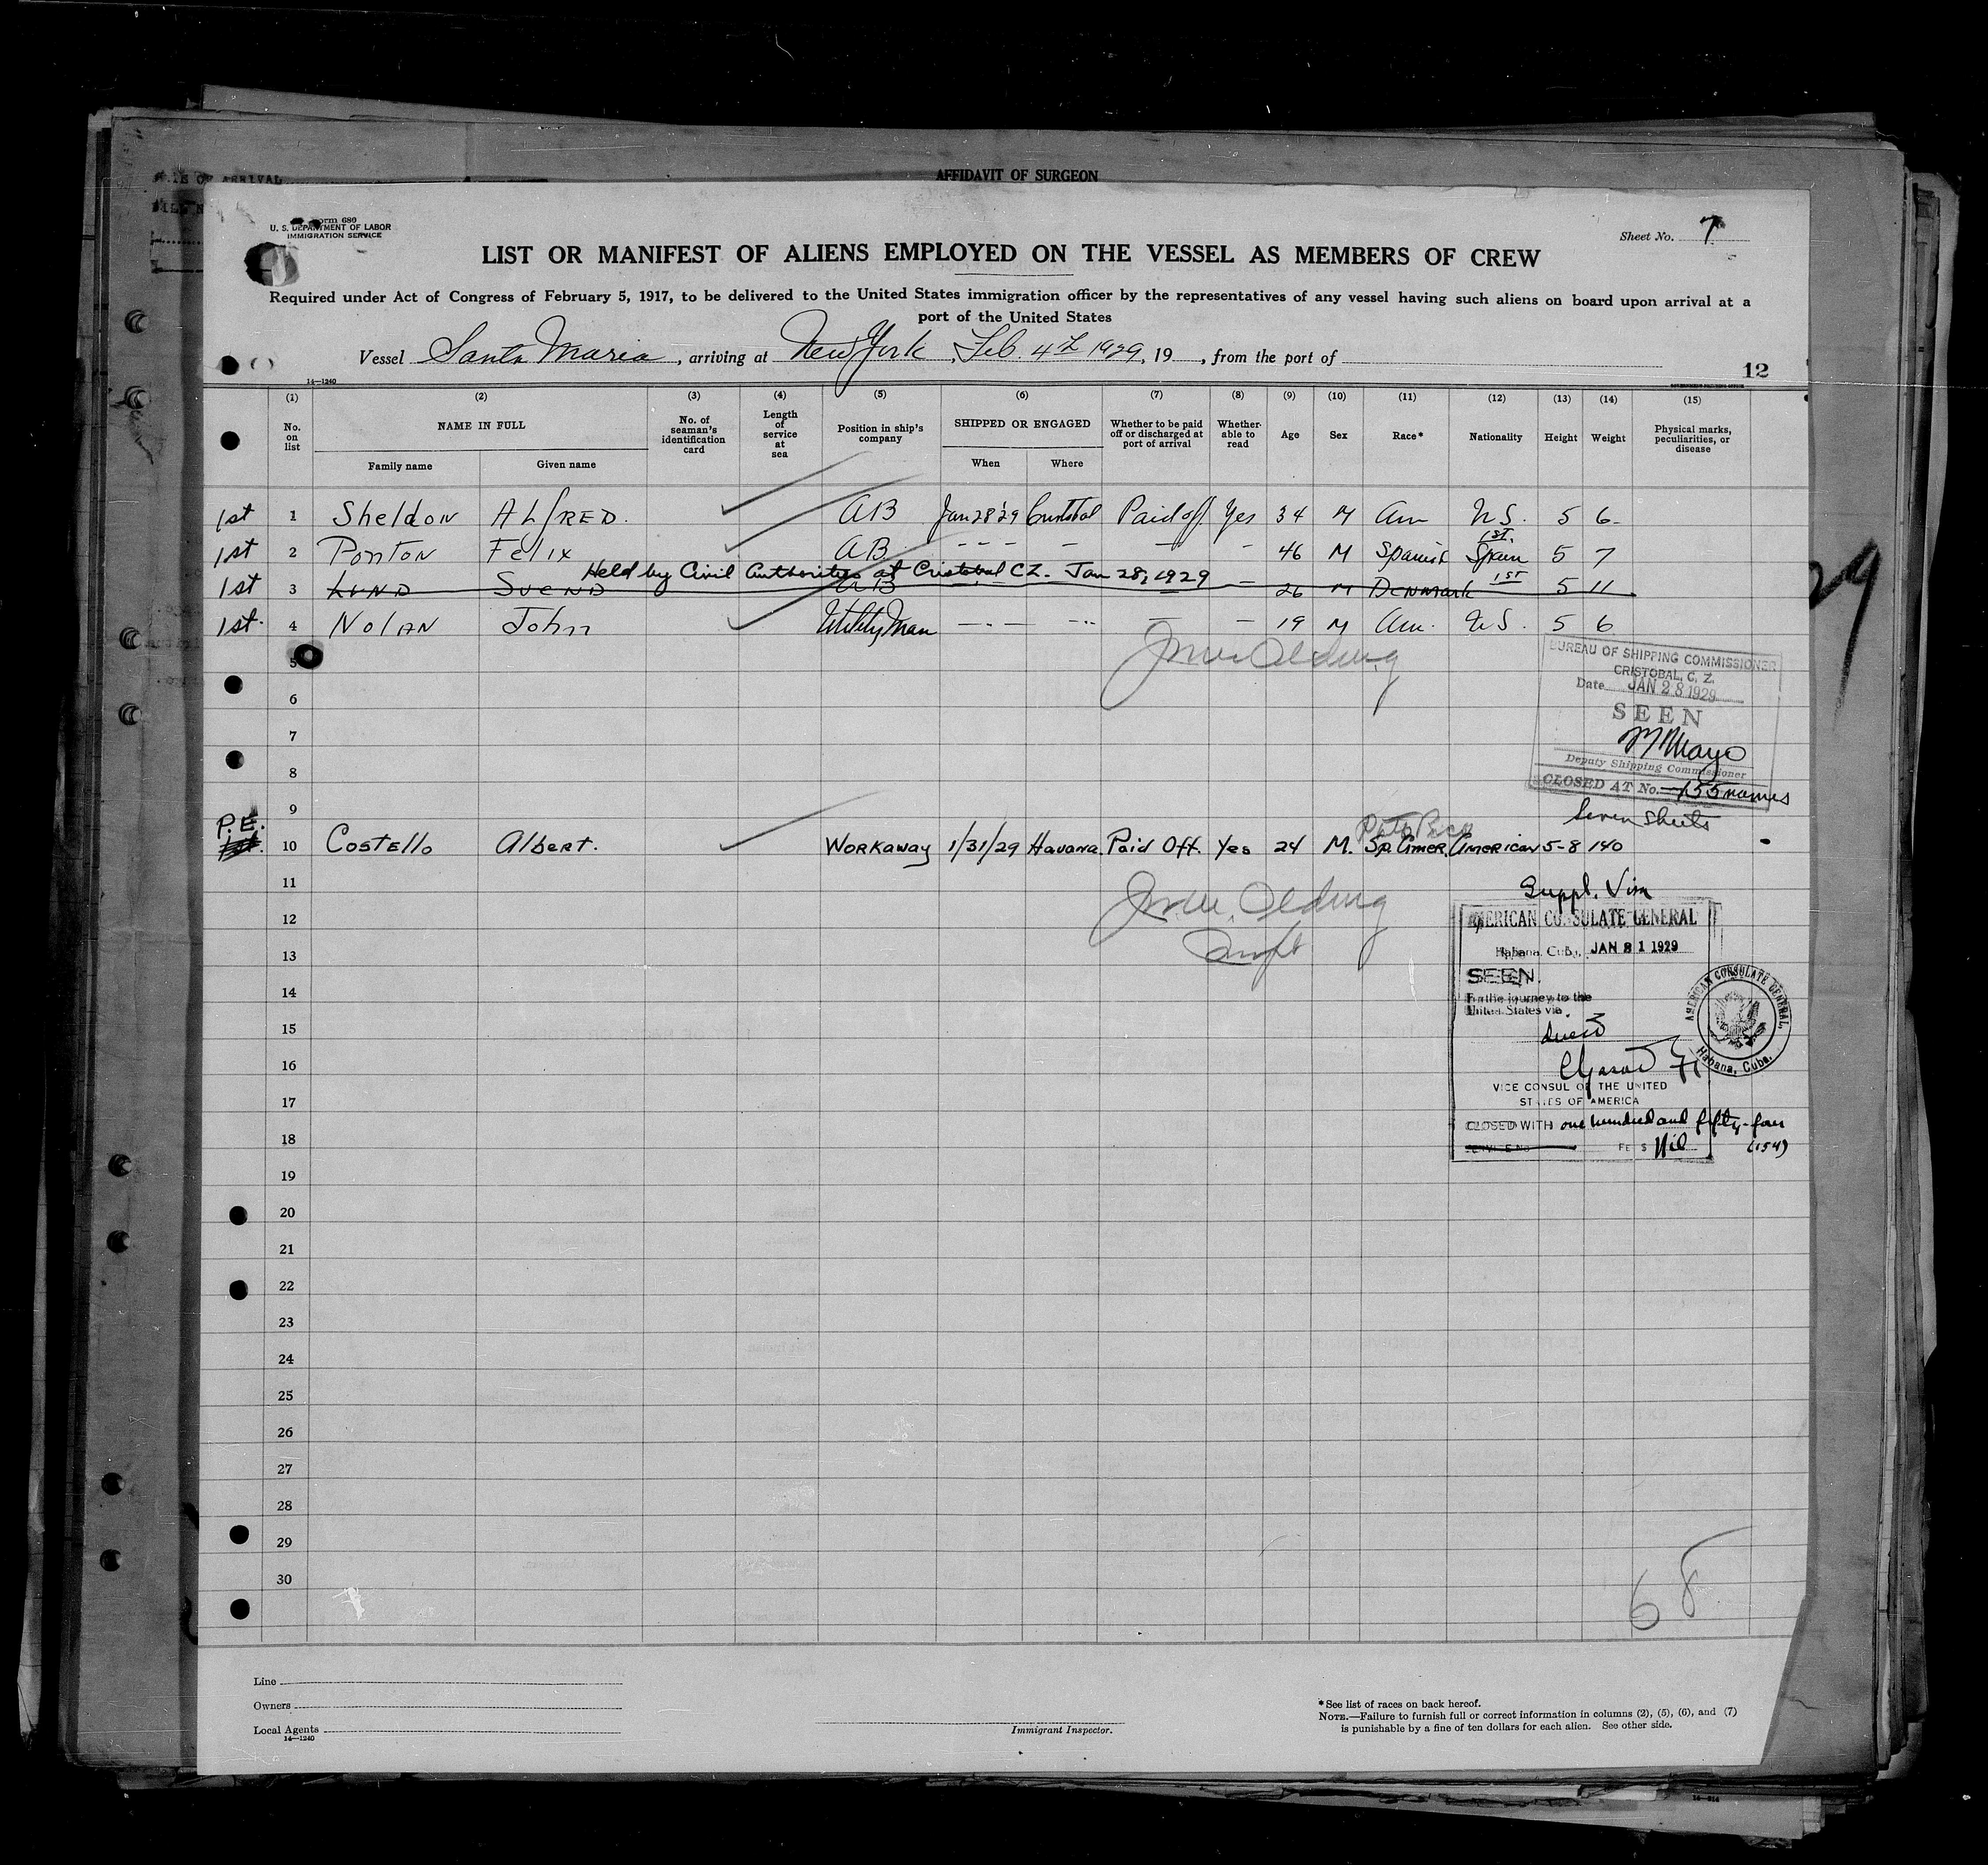 AFFIDAVIT OF SURGEON
Form 680
U. S. DEPARTMENT OF LABOR
IMMIGRATION SERVICE
Sheet No. 7
LIST OR MANIFEST OF ALIENS EMPLOYED ON THE VESSEL AS MEMBERS OF CREW
Required under Act of Congress of February 5, 1917, to be delivered to the United States immigration officer by the representatives of any vessel having such aliens on board upon arrival at a
port of the United States
Vessel Santa Maria, arriving at New York, Feb. 4th 1929, 19 , from the port of
12
14—1240
(1) (2) (3) (4) (5) (6) (7) (8) (9) (10) (11) (12) (13) (14) (15)
No. on list NAME IN FULL No. of seaman's identification card Length of service at sea Position in ship's company SHIPPED OR ENGAGED Whether to be paid off or discharged at port of arrival Whether able to read Age Sex Race* Nationality Height Weight Physical marks, peculiarities, or disease
Family name Given name When Where
1st 1 Sheldon ALfRED. AB Jan 28 '29 Cristobal Paid off Yes 34 M Am U.S. 5 6
1st.
1st 2 Ponton Felix AB - - - - - - 46 M Spanish Spain 5 7
Held by Civil Authorities at Cristobal CZ. Jan 28, 1929
1st 3 Lund Svend AB - 26 M Denmark 1st 5 11
1st. 4 Nolan John Utility Man - - - - - - - 19 M Am. U.S. 5 6
5
BUREAU OF SHIPPING COMMISSIONER
CRISTOBAL, C. Z.
Date JAN 28 1929
6
SEEN
7
M Mayo
Deputy Shipping Commissioner
8
CLOSED AT No. 155 names
9
Seven sheets
P.E.
1st. 10 Costello Albert. Workaway 1/31/29 Havana. Paid Off. Yes 24 M. Sp. Amer. American 5-8 140
11
Suppl. Visa
12
AMERICAN CONSULATE GENERAL
13
Habana, Cuba, JAN 31 1929
SEEN.
14
For the journey to the
United States via
15
direct
AMERICAN CONSULATE GENERAL,
Habana, Cuba.
16
VICE CONSUL OF THE UNITED
17
STATES OF AMERICA
18
CLOSED WITH one hundred and fifty-four
SERVICE NO FEE $ Nil (154)
19
20
21
22
23
24
25
26
27
28
29
30
68
Line
Owners
Local Agents
14—1240
Immigrant Inspector.
*See list of races on back hereof.
NOTE.—Failure to furnish full or correct information in columns (2), (5), (6), and (7)
is punishable by a fine of ten dollars for each alien. See other side.